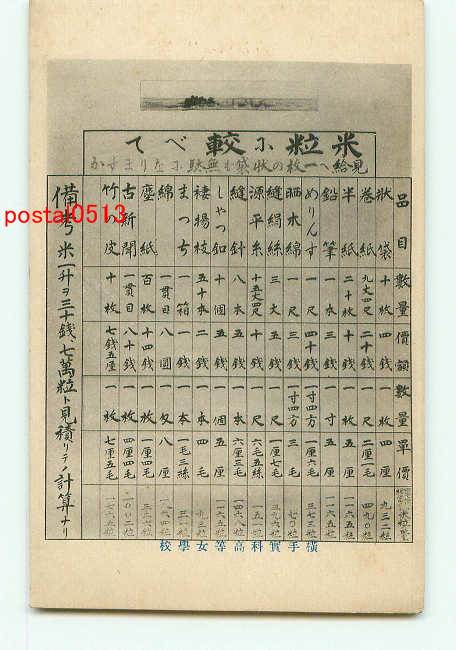 米粒に較べて
見給へ一枚の状袋も無駄になりますか
品目 數量 價額 數量 單價
状袋 十枚 四錢 一枚 四厘 九三二粒
巻紙 九丈四尺 二十錢 一尺 二厘一毛 四九〇粒
半紙 二十枚 十錢 一枚 五厘 一一六五粒
鉛筆 一本 五錢 一寸
めりんす 一尺 四十錢 一寸四方 一厘六毛 三七三粒
晒木綿 一尺 三錢 一寸四方 三毛 七〇粒
縫絹絲 三丈 五錢 一尺 一厘七毛 三九六粒
源平糸 十五丈四尺 十錢 一尺 六毛五絲 一五一粒
縫針 八本 五錢 一本 六厘三毛 一四六八粒
しゃつ釦 十個 五錢 一個 五厘 一一六五粒
楊枝 五十本 二錢 一本 四毛 九三粒
まっち 一箱 一錢 一本 一毛三絲 三一粒
綿 一貫目 八圓 一匁 八厘
塵紙 百枚 十四錢 一枚 一厘四毛
古新聞 一貫目 八十錢 一枚 四厘四毛
竹皮 十枚 七錢五厘 一枚 七厘五毛
備考 米一升ヲ三十錢、七萬粒ト見積リテノ計算ナリ
横手實科高等女學校
postal0513